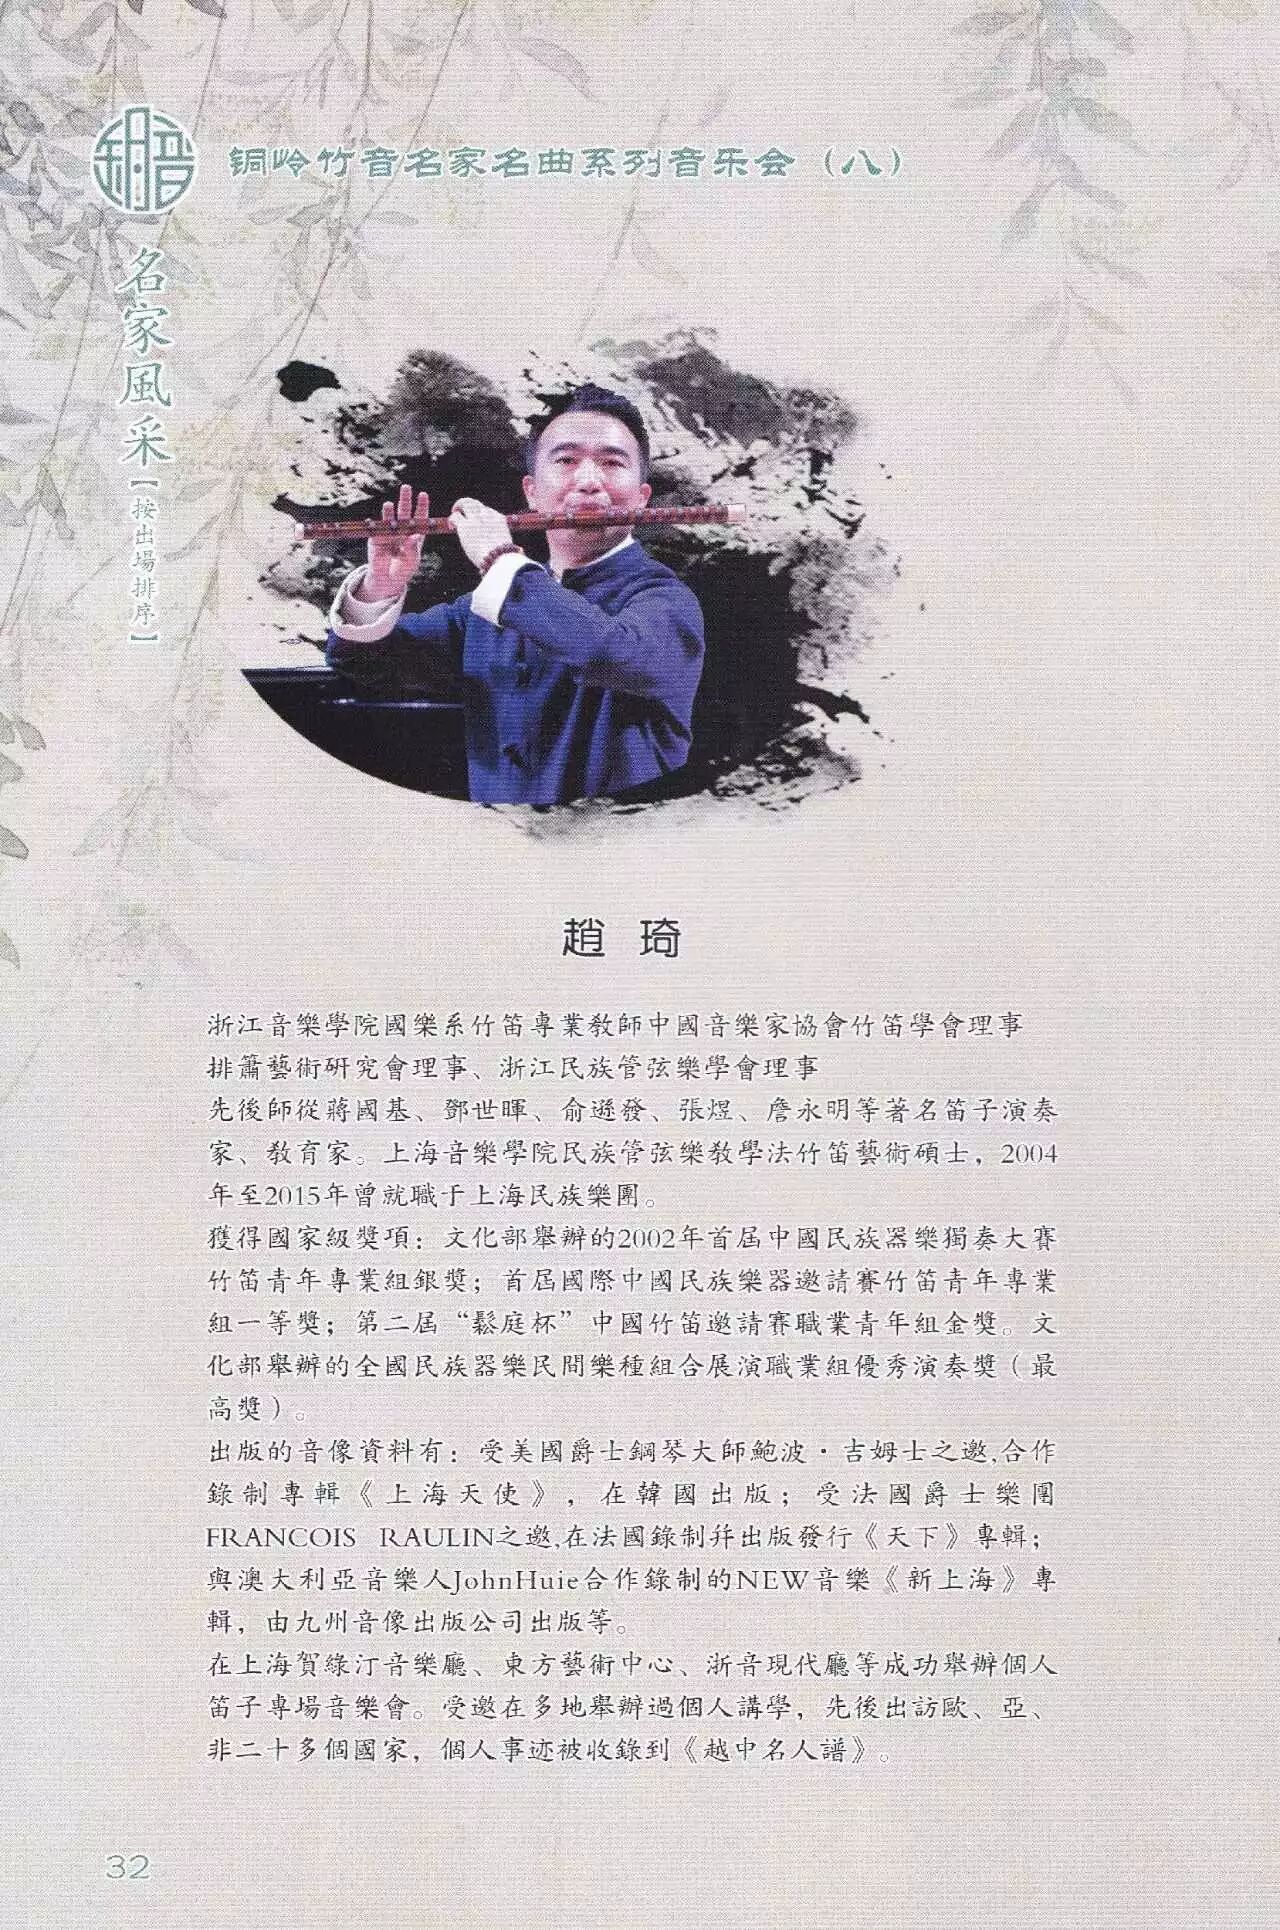 铜岭竹音名家名曲系列音乐会（八）
名家風采【按出場排序】
趙 琦
浙江音樂學院國樂系竹笛專業教師中國音樂家協會竹笛學會理事
排簫藝術研究會理事、浙江民族管弦樂學會理事
先後師從蔣國基、鄧世暉、俞遜發、張煜、詹永明等著名笛子演奏
家、教育家。上海音樂學院民族管弦樂教學法竹笛藝術碩士，2004
年至2015年曾就職于上海民族樂團。
獲得國家級獎項：文化部舉辦的2002年首屆中國民族器樂獨奏大賽
竹笛青年專業組銀獎；首屆國際中國民族樂器邀請賽竹笛青年專業
組一等獎；第二屆“鬆庭杯”中國竹笛邀請賽職業青年組金獎。文
化部舉辦的全國民族器樂民間樂種組合展演職業組優秀演奏獎（最
高獎）。
出版的音像資料有：受美國爵士鋼琴大師鮑波·吉姆士之邀,合作
錄制專輯《上海天使》，在韓國出版；受法國爵士樂團
FRANCOIS RAULIN之邀,在法國錄制幷出版發行《天下》專輯；
與澳大利亞音樂人JohnHuie合作錄制的NEW音樂《新上海》專
輯，由九州音像出版公司出版等。
在上海賀綠汀音樂廳、東方藝術中心、浙音現代廳等成功舉辦個人
笛子專場音樂會。受邀在多地舉辦過個人講學，先後出訪歐、亞、
非二十多個國家，個人事迹被收錄到《越中名人譜》。
32